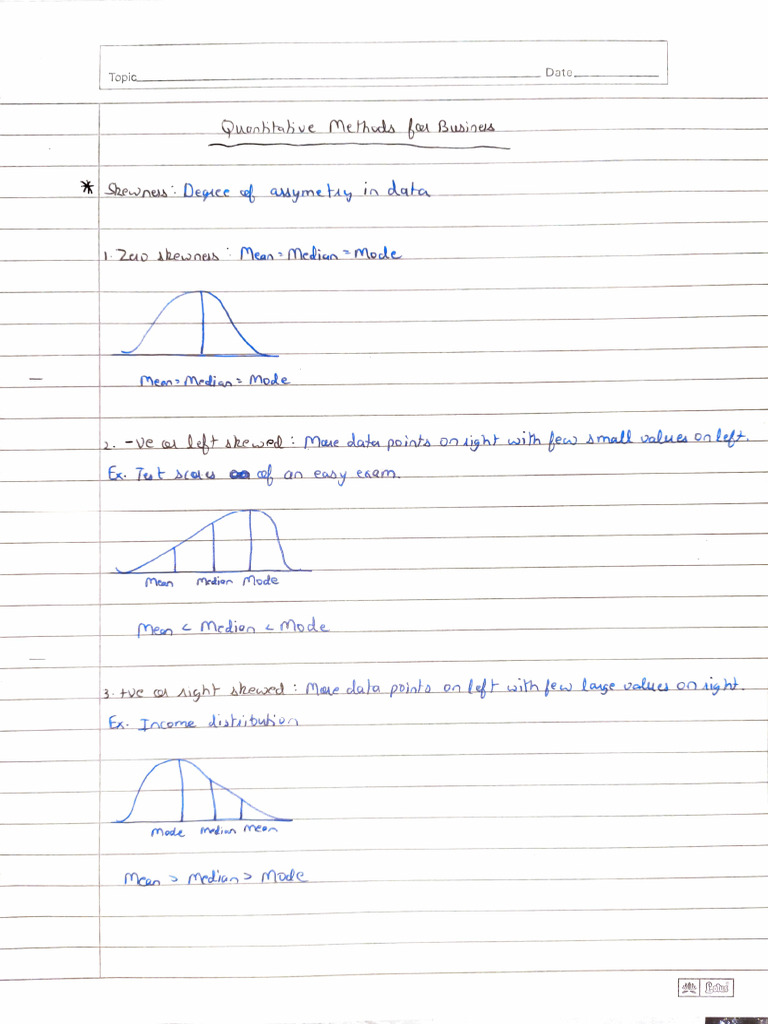 Topic Date
Quantitative Methods for Business
* Skewness: Degree of assymetry in data
1. Zero skewness: Mean = Median = Mode
Mean = Median = Mode
2. -ve or left skewed: More data points on right with few small values on left.
Ex. Test scores of an easy exam.
Mean Median Mode
Mean < Median < Mode
3. +ve or right skewed: More data points on left with few large values on right.
Ex. Income distribution
Mode Median Mean
Mean > Median > Mode
Lotus